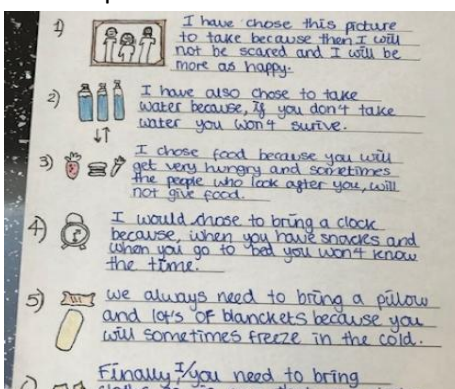 1) I have chose this picture
to take because then I will
not be scared and I will be
more as happy.
2) I have also chose to take
water because, If you don't take
water you won't surive.
3) I chose food because you will
get very hungry and sometimes
the people who look after you, will
not give food.
4) I would chose to bring a clock
because, when you have snacks and
when you go to bed you won't know
the time.
5) we always need to bring a pillow
and lot's of blanckets because you
will sometimes freeze in the cold.
Finally I/you need to bring